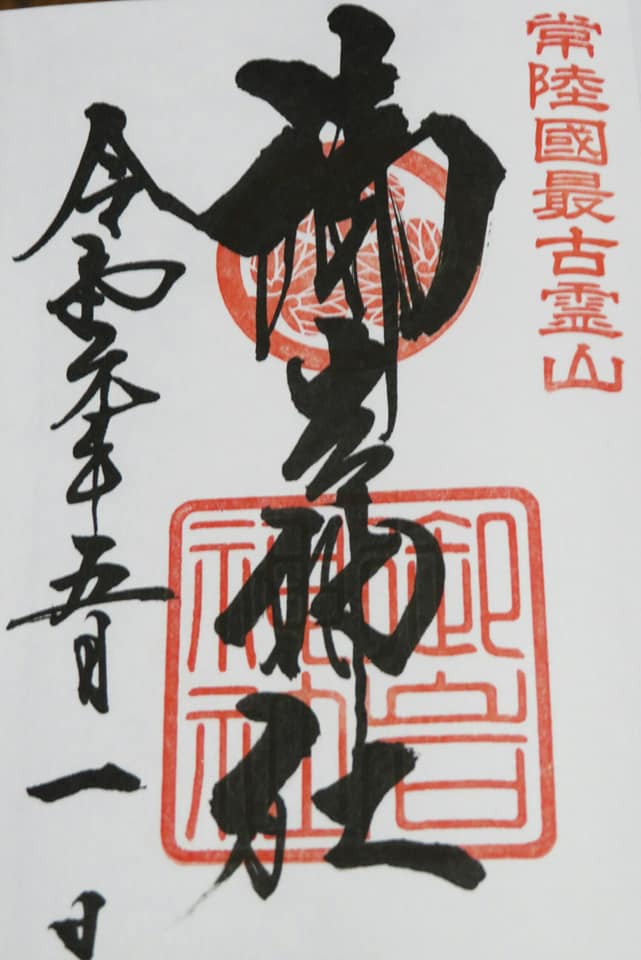 常陸國最古霊山
御岩神社
御岩
神社
令和元年五月一日